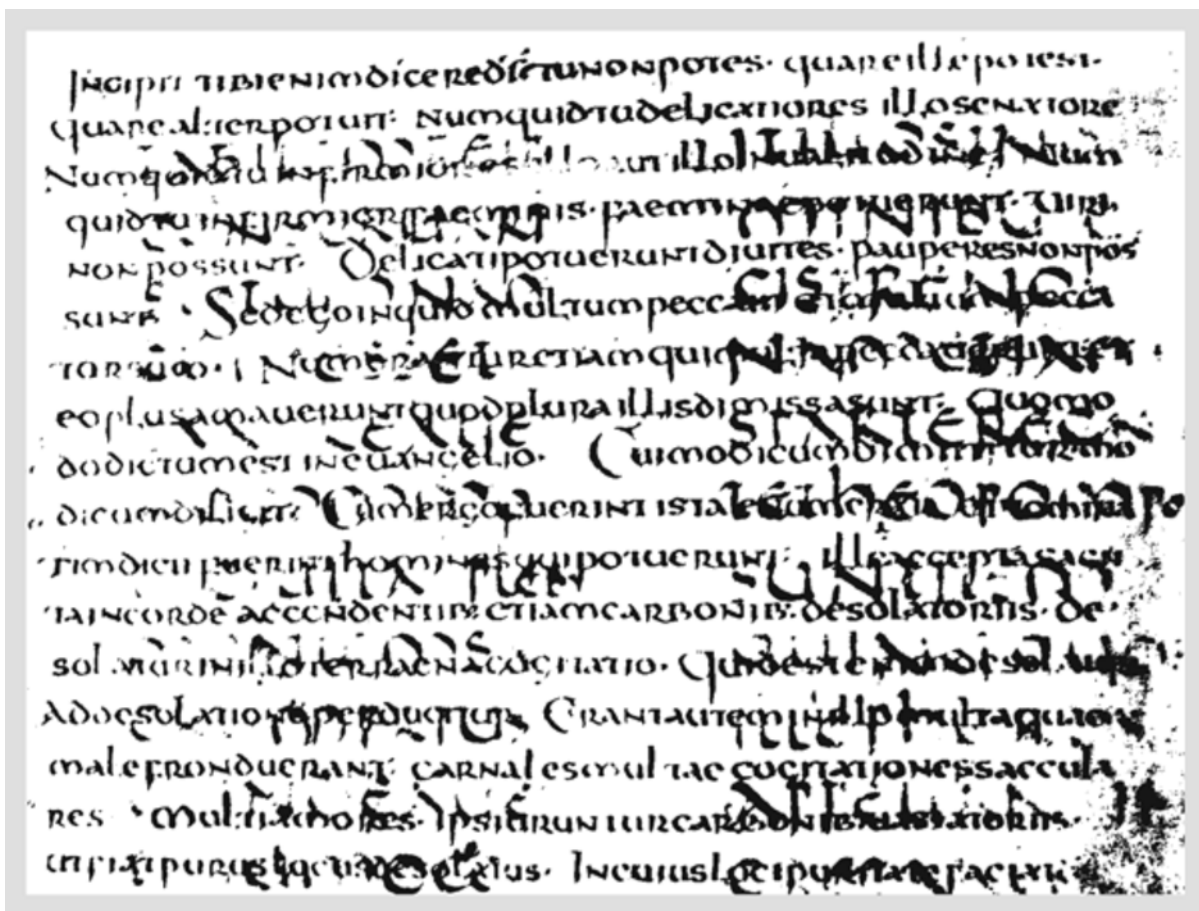 Incipit tibi enim dicere dictu non potes. quare ille potest.
quare alter potuit. Numquid tu delicatiores illo senatore
Numquid tu infirmior es illo aut illo
quid tu infirmior faeminis. faeminae potuerunt. uiri
non possunt. Delicati potuerunt diuites. pauperes non pos
sunt. Sed ego inquid multum peccaui
Numerantur etiam qui
eo plus amauerunt quod plura illis dimissa sunt. Quomo
do dictum est in euangelio. Cui modicum dimittitur mo
dicum diligit. Cum ergo fuerint ista
tim dicti fuerint homines qui potuerunt. ille accepta sagit
ta in corde accendentib. etiam carbonib. desolatoriis. de
solatur in illo terraena cogitatio. Quid est enim desolatur
Ad desolationem perducitur. Erant autem in illo multa quae
male fronduerant. carnales multae cogitationes saecula
res. multi amores. Ipsi uruntur carbonibus desolatoriis.
ut fiat purus locus desolatus. In cuius loci puritate faciat